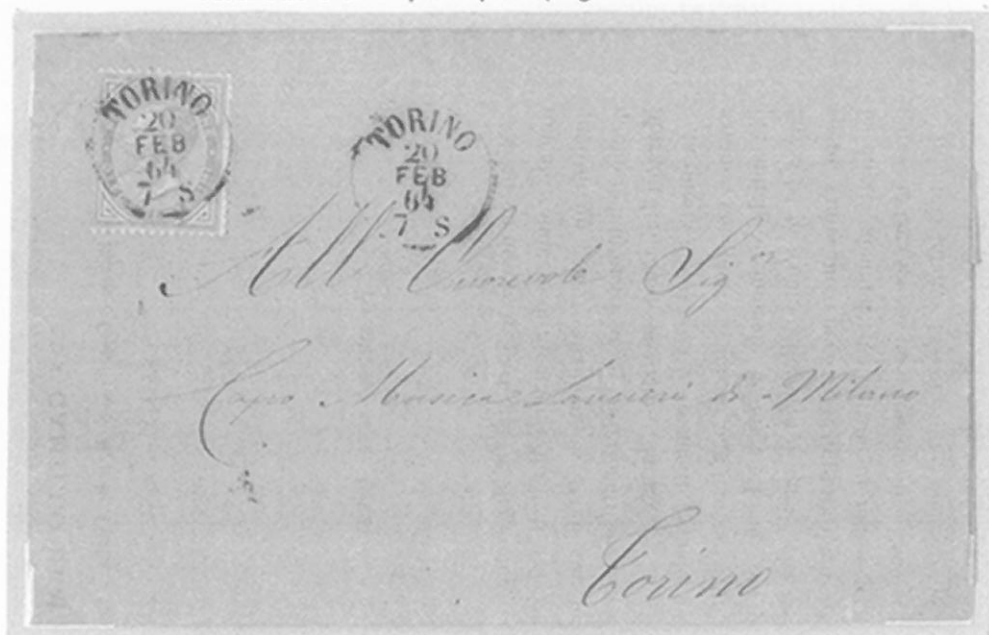 TORINO
20
FEB
64
7 S
TORINO
20
FEB
64
7 S
All' Onorevole Sigor
Capo Musica Lancieri di Milano
Torino